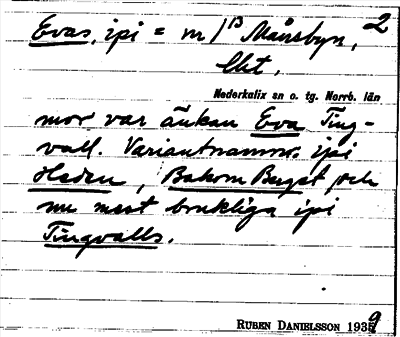 Evas, ipi = m/B Månsbyn, 2
lht.
Nederkalix sn o. tg. Norrb. län
mor var änkan Eva Ting-
vall. Variantnamn. ipi
Heden, Bakom Berget och
nu mest brukliga ipi
Tingvalls.
RUBEN DANIELSSON 1939